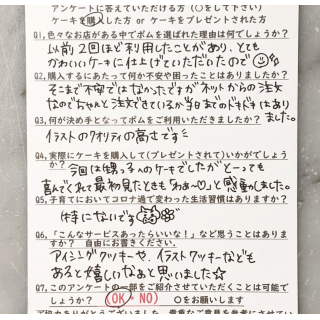 アンケートに答えていただける方（○をして下さい）
ケーキを購入した方 or ケーキをプレゼントされた方
Q1,色々なお店がある中でボムを選ばれた理由は何でしょうか？
以前2回ほど利用したことがあり、とても
かわいいケーキに仕上げていただいたので
Q2,購入するにあたって何か不安や困ったことはありましたか？
そこまで不安ではなかったですが ネットからの注文
なのでちゃんと注文できているか当日までのドキドキはあり
ました。
Q3,何が決め手となってボムをご利用いただきましたか？
イラストのクオリティの高さです
Q4,実際にケーキを購入して(プレゼントされて)いかがでしょうか？
今回は甥っ子へのケーキでしたが とーっても
喜んでくれて最初見たときも「わあ〜♡」と感動しました。
Q5,子育てにおいてコロナ過で変わった生活習慣はありますか？
特にないです
Q6,「こんなサービスあったらいいな！」など思うことはありま
すか？　自由にお書きください。
アイシングクッキーや、イラストクッキーなども
あると嬉しいなぁと思いました☆
Q7,このアンケートの一部をご紹介させていただくことは可能で
しょうか？（OK・NO）　○をお願いします